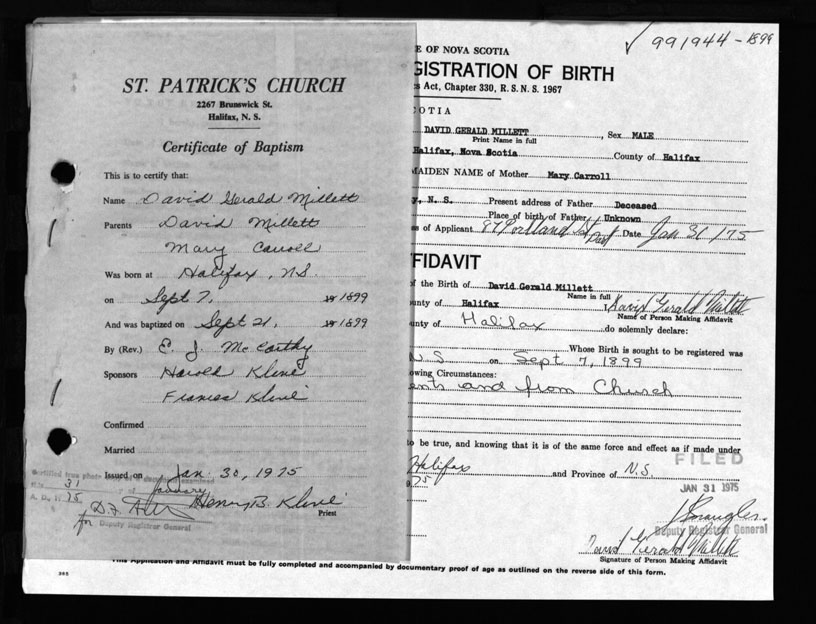 ✓ 991944-1899
ST. PATRICK'S CHURCH
2267 Brunswick St.
Halifax, N. S.
Certificate of Baptism
This is to certify that:
Name David Gerald Millett
Parents David Millett
Mary Carroll
Was born at Halifax, N.S.
on Sept 7, 1899
And was baptized on Sept 21, 1899
By (Rev.) E. J. McCarthy
Sponsors Harold Kline
Frances Kline
Confirmed
Married
Issued on Jan. 30, 1975
Certified true photo
31 January
A. D. 19 75
Henry B. Kline
Priest
for Deputy Registrar General
E OF NOVA SCOTIA
GISTRATION OF BIRTH
s Act, Chapter 330, R. S. N. S. 1967
OTIA
DAVID GERALD MILLETT, Sex MALE
Print Name in full
Halifax, Nova Scotia County of Halifax
MAIDEN NAME of Mother Mary Carroll
, N. S. Present address of Father Deceased
Place of birth of Father Unknown
s of Applicant 87 Portland St Dart Date Jan 31/75
FFIDAVIT
of the Birth of David Gerald Millett
Name in full
unty of Halifax, David Gerald Millett
Name of Person Making Affidavit
unty of Halifax do solemnly declare:
Whose Birth is sought to be registered was
N S on Sept 7, 1899
owing Circumstances:
ents and from Church
o be true, and knowing that it is of the same force and effect as if made under
Halifax and Province of N.S.
75
FILED
JAN 31 1975
Deputy Registrar General
David Gerald Millett
Signature of Person Making Affidavit
This Application and Affidavit must be fully completed and accompanied by documentary proof of age as outlined on the reverse side of this form.